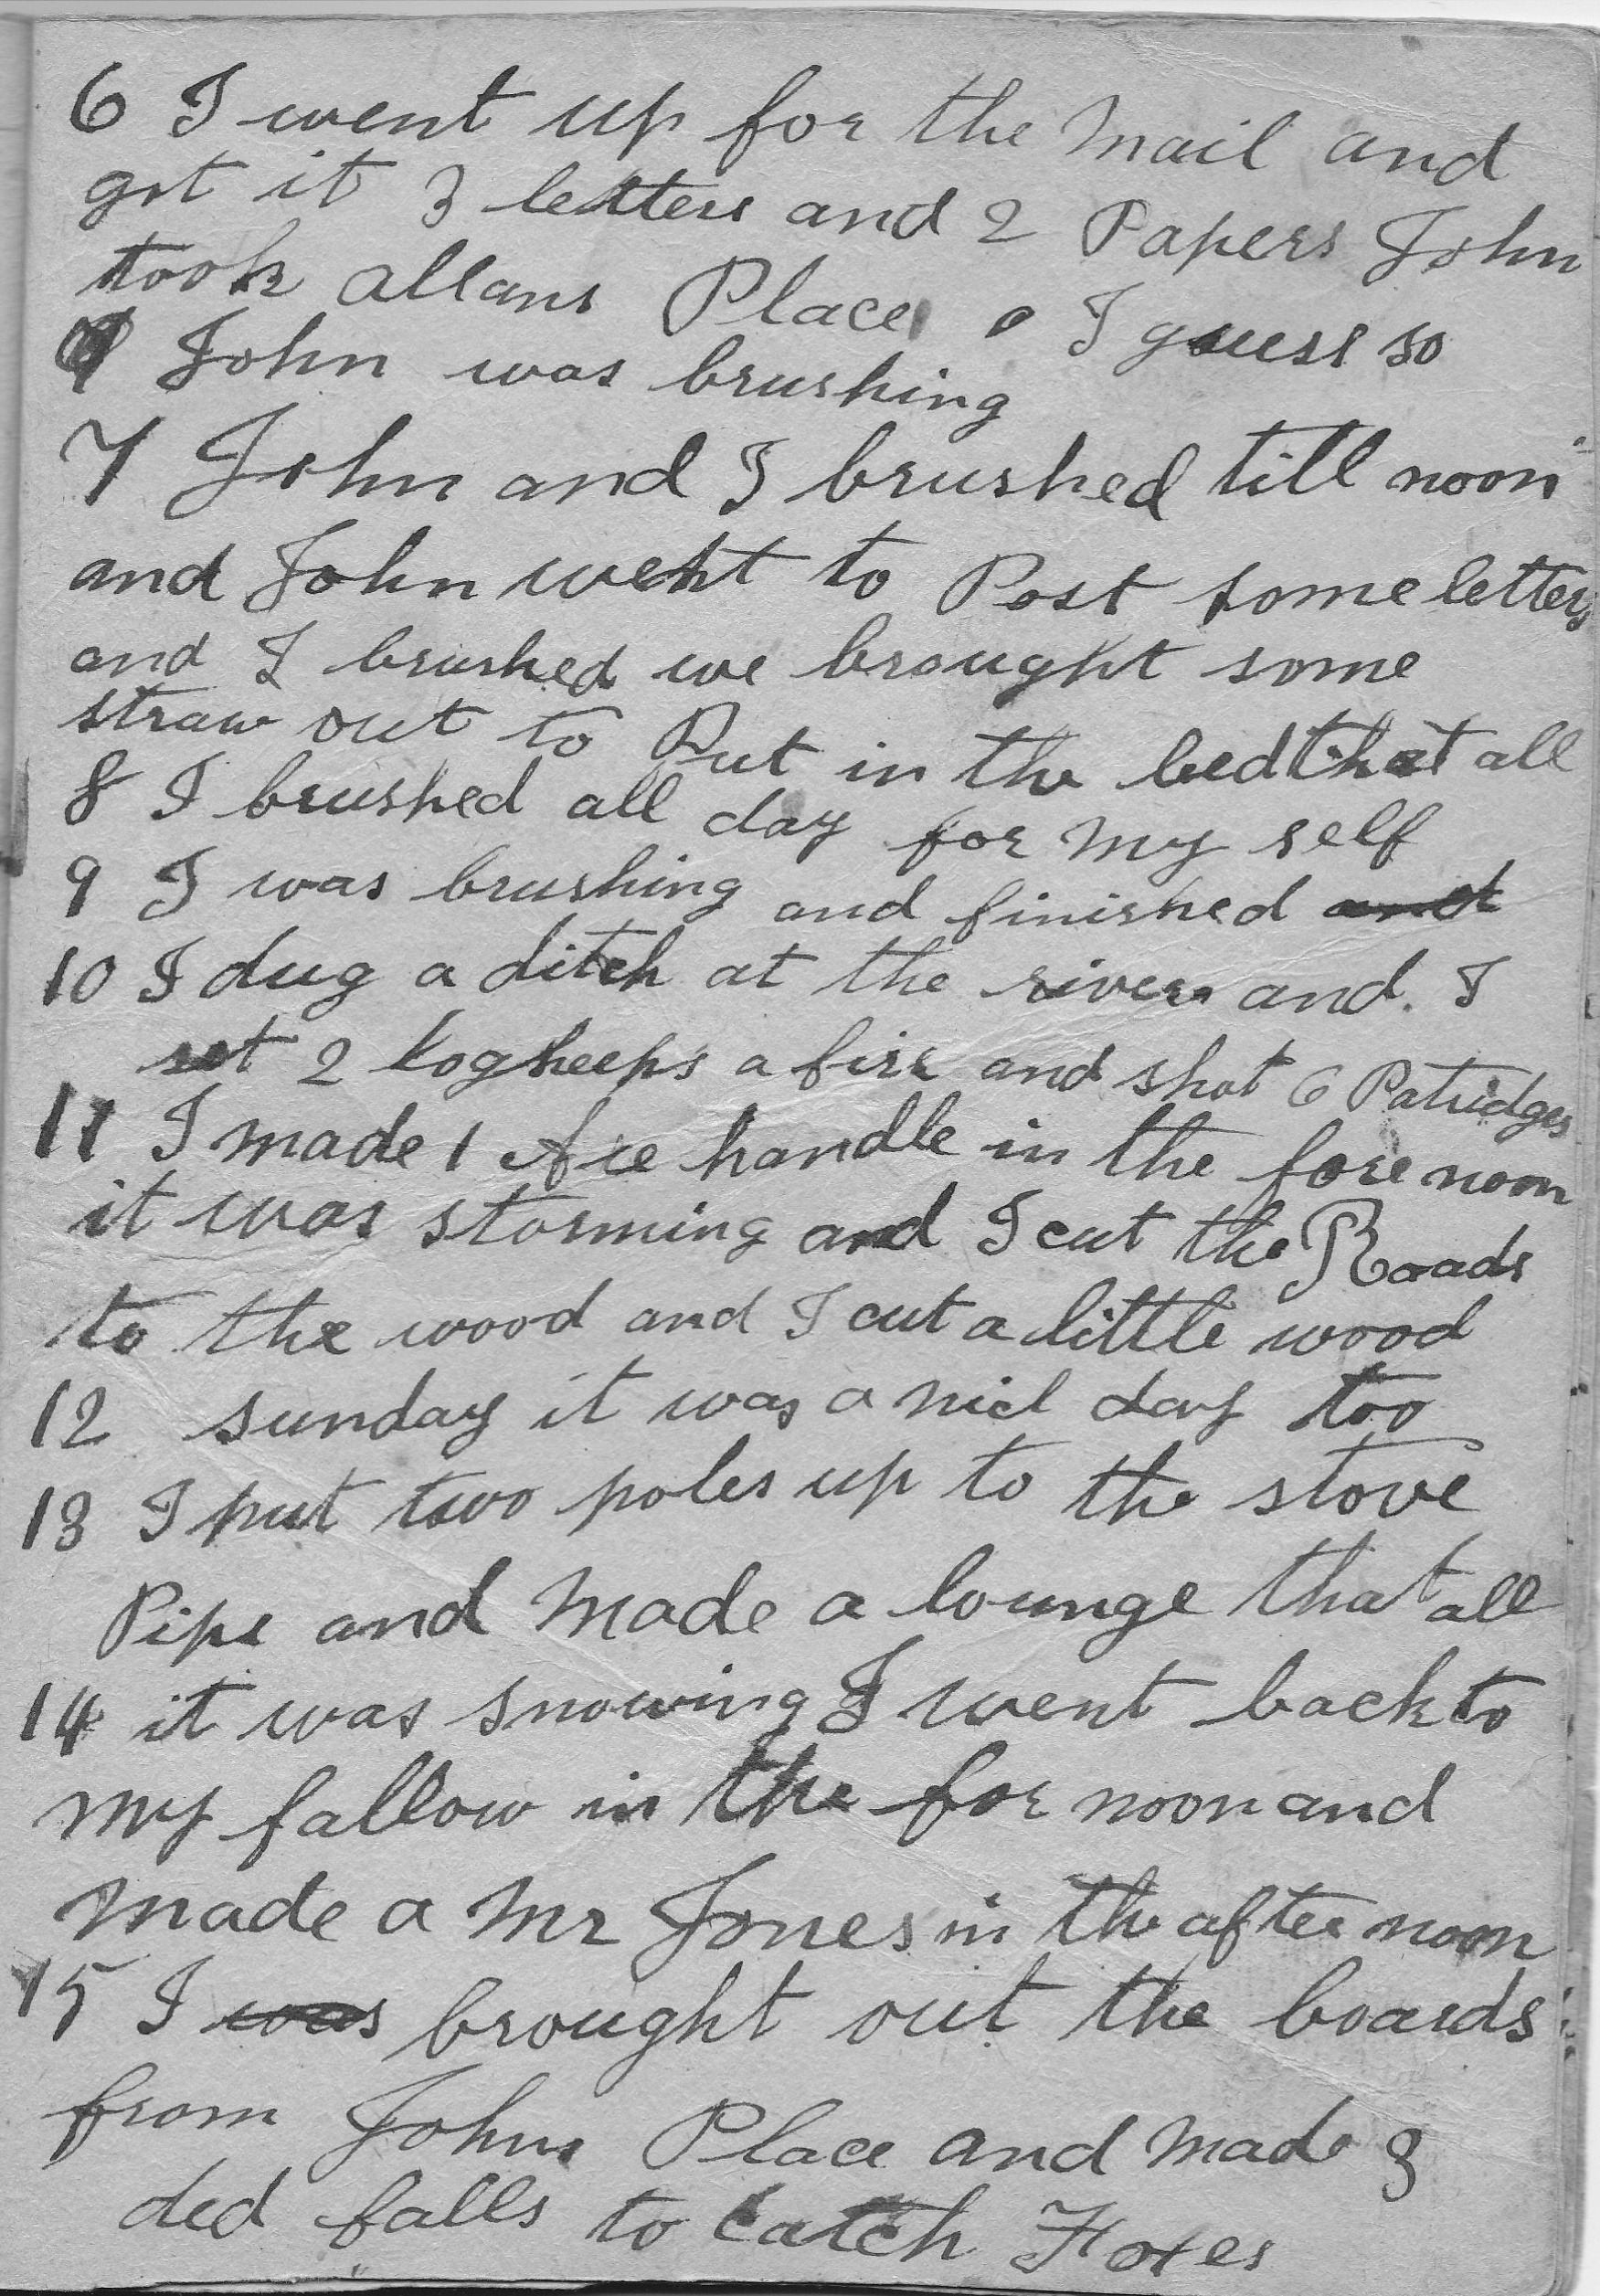 6 I went up for the Mail and
got it 3 letters and 2 Papers John
took allans Place I guess so
John was brushing
7 John and I brushed till noon
and John went to Post some letters
and I brushed we brought some
straw out to Put in the bed that all
8 I brushed all day for my self
9 I was brushing and finished and
10 I dug a ditch at the river and. I
set 2 logheeps a fire and shot 6 Patridges
11 I made 1 Axe handle in the fore noon
it was storming and I cut the Roads
to the wood and I cut a little wood
12 sunday it was a nice day too
13 I put two poles up to the stove
Pipe and made a lounge that all
14 it was snowing I went back to
my fallow in the for noon and
made a Mr Jones in the after noon
15 I was brought out the boards
from Johns Place and made 3
ded falls to catch Foxes